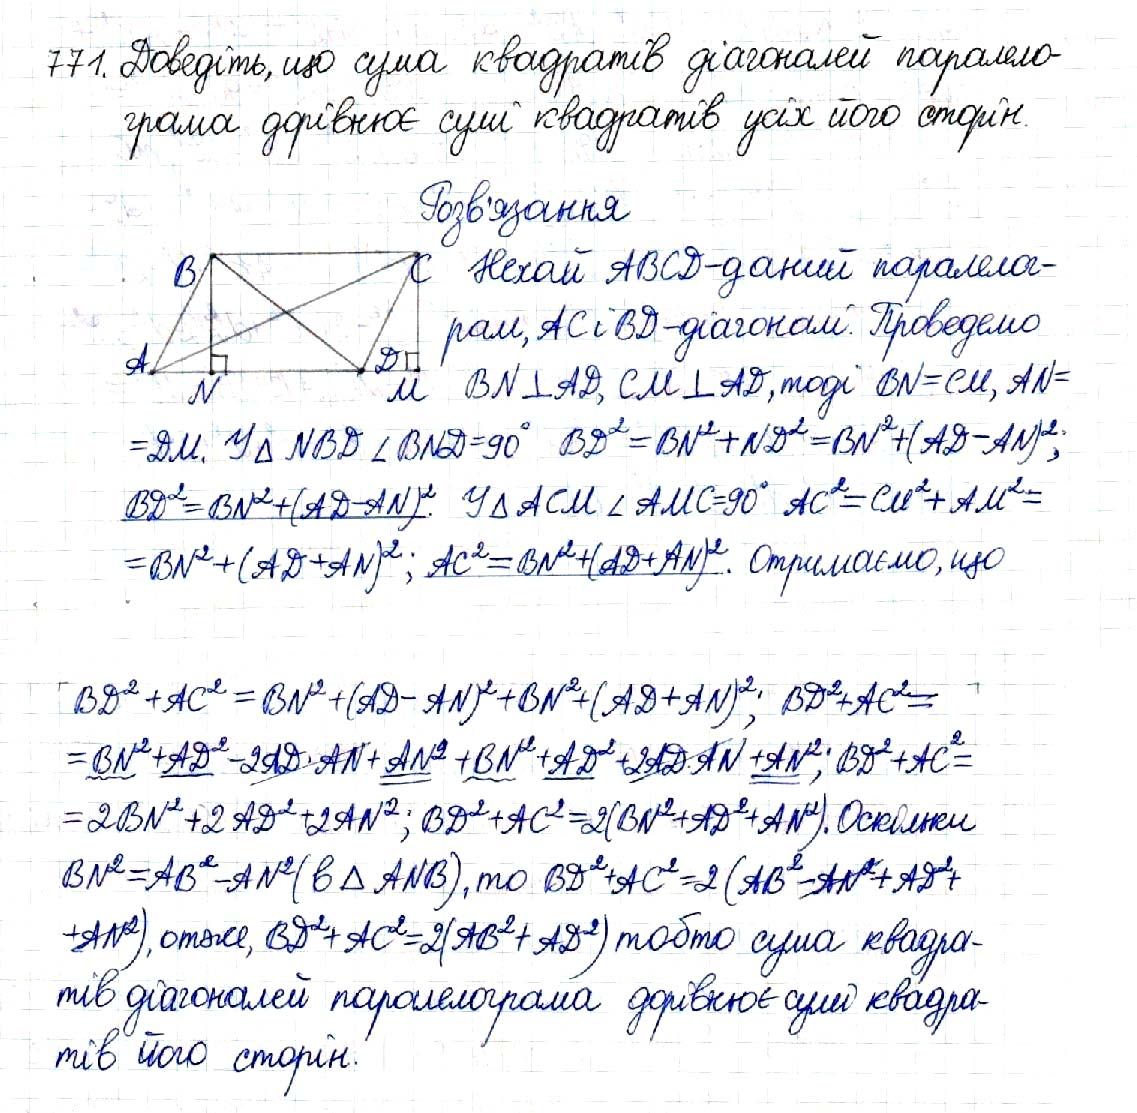 771. Доведіть, що сума квадратів діагоналей паралело-
грама дорівнює сумі квадратів усіх його сторін.
Розв'язання
B C Нехай ABCD-даний паралелог-
рам, AC і BD-діагоналі. Проведемо
A N D M BN⊥AD, CM⊥AD, тоді BN=CM, AN=
=DM. У △ NBD ∠BND=90° BD²=BN²+ND²=BN²+(AD-AN)²;
BD²=BN²+(AD-AN)². У △ ACM ∠ AMC=90° AC²=CM²+AM²=
=BN²+(AD+AN)²; AC²=BN²+(AD+AN)². Отримаємо, що
BD²+AC²=BN²+(AD-AN)²+BN²+(AD+AN)²; BD²+AC²=
=BN²+AD²-2AD·AN+AN²+BN²+AD²+2AD·AN+AN²; BD²+AC²=
=2BN²+2AD²+2AN²; BD²+AC²=2(BN²+AD²+AN²). Оскільки
BN²=AB²-AN²(в △ ANB), то BD²+AC²=2(AB²-AN²+AD²+
+AN²), отже, BD²+AC²=2(AB²+AD²) тобто сума квадра-
тів діагоналей паралелограма дорівнює сумі квадра-
тів його сторін.